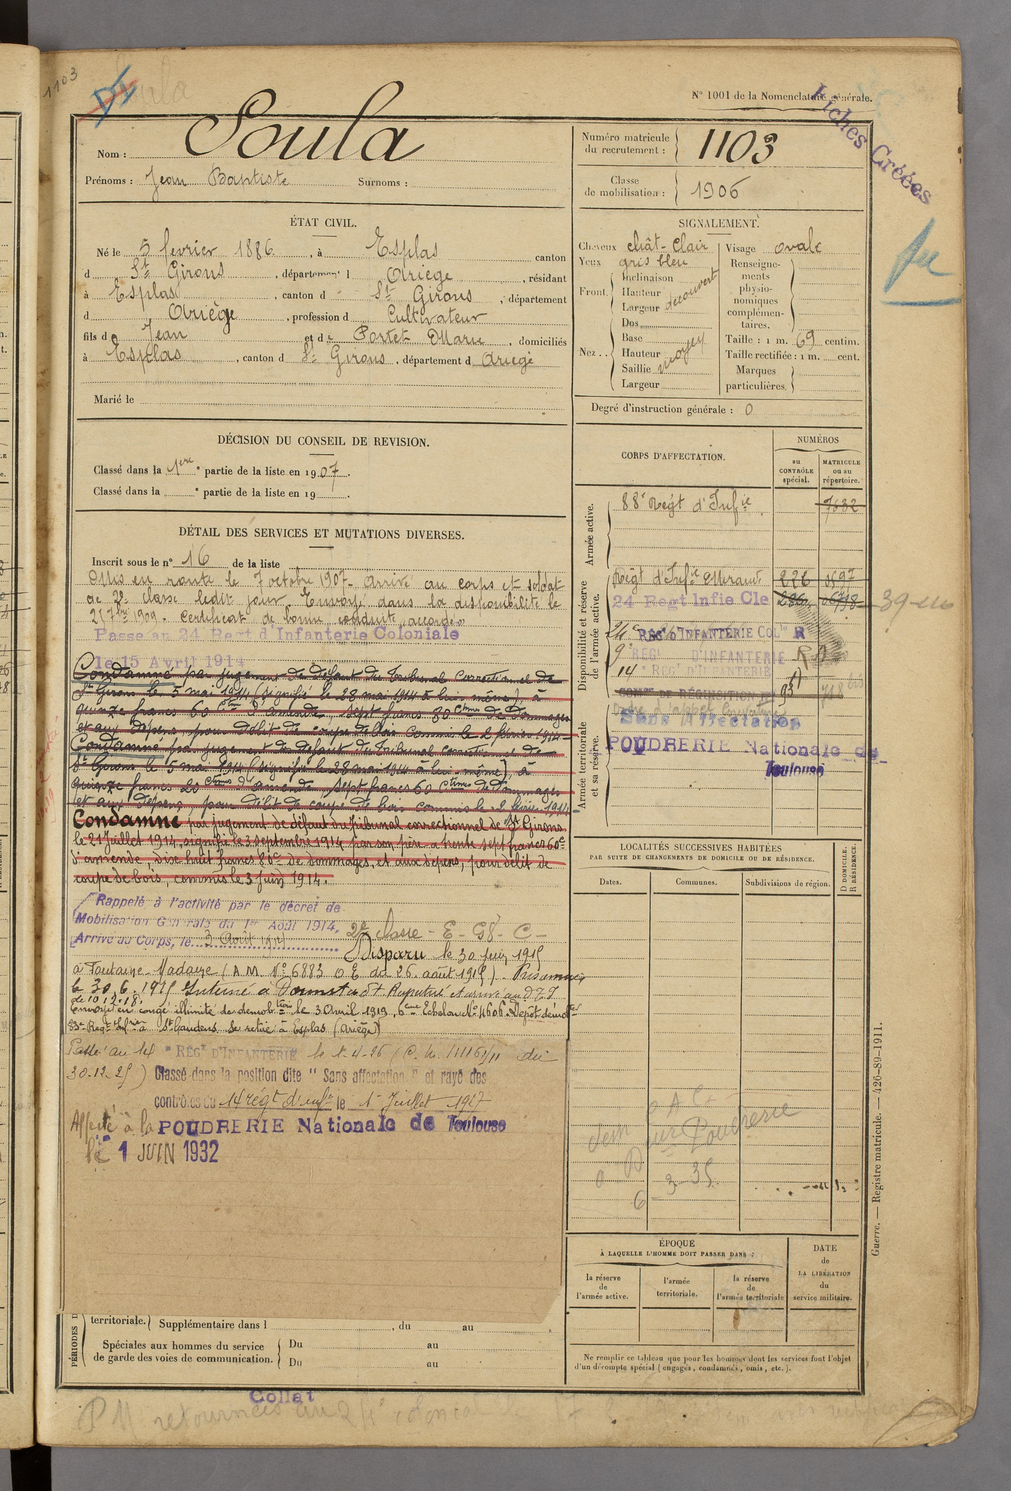 1103
N° 1001 de la Nomenclature générale.
Fiches Créées
Nom : Soula
Prénoms : Jean Baptiste Surnoms :
Numéro matricule du recrutement : 1103
Classe de mobilisation : 1906
ÉTAT CIVIL.
Né le 5 fevrier 1886, à Esplas canton
d St Girons, département d Ariège, résidant
à Esplas, canton d St Girons, département
d Ariège, profession d Cultivateur
fils de Jean et de Portet Marie, domiciliés
à Esplas, canton d St Girons, département d Ariège
Marié le
SIGNALEMENT.
Cheveux chât-clair
Yeux gris bleu
Front. Inclinaison
Hauteur
Largeur découvert
Nez. Dos
Base
Hauteur
Saillie moyen
Largeur
Visage ovale
Renseignements physionomiques complémentaires.
Taille : 1 m. 69 centim.
Taille rectifiée : 1 m. cent.
Marques particulières.
Degré d'instruction générale : 0
DÉCISION DU CONSEIL DE REVISION.
Classé dans la 1ère partie de la liste en 1907.
Classé dans la e partie de la liste en 19
DÉTAIL DES SERVICES ET MUTATIONS DIVERSES.
Inscrit sous le n° 16 de la liste
Mis en route le 7 octobre 1907. Arrivé au corps et soldat
de 2e classe ledit jour. Envoyé dans la disponibilité le
25 7bre 1909. Certificat de bonne conduite accordé
Passé au 24 Regt d'Infanterie Coloniale
le 15 Avril 1914
Condamné par jugement de défaut du Tribunal correctionnel de
St Girons le 5 mai 1914 (signifié le 28 mai 1914 à lui-même), à
quinze francs 60 ctmes d'amende, sept francs 80 ctmes de dommages
et aux dépens, pour délit de coupe de bois commis le 2 février 1914
Condamné par jugement de défaut du Tribunal correctionnel de
St Girons le 5 mai 1914 (signifié le 28 mai 1914 à lui-même), à
quinze francs 20 ctmes d'amende, sept francs 60 ctmes de dommages
et aux dépens, pour délit de coupe de bois commis le 2 février 1914
Condamné par jugement de défaut du Tribunal correctionnel de St Girons
le 21 Juillet 1914, signifié le 3 septembre 1914 par son père à trente sept francs 60c
d'amende, dix huit francs 81c de dommages, et aux dépens, pour délit de
coupe de bois, commis le 3 Juin 1914.
Rappelé à l'activité par le décret de
Mobilisation Générale du 1er Août 1914.
Arrivé au Corps, le 3 Août 1914
2e classe
Disparu le 30 juin 1915
à Fontaine Madame (A.M. N° 6883 O E du 26 août 1915) Prisonnier
le 30.6.1915 Interné à Darmstadt Rapatrié et arrivé au
de 10.12.18.
Envoyé en congé illimité de démobtion le 3 Avril 1919, 6eme Echelon N° 4606. Dépôt démobr
83e Regt Infrie à St Gaudens. Se retire à Esplas (Ariège)
Passé au 14e REGt D'INFANTERIE le 1-4-26 du
30.12.25) Classé dans la position dite "Sans affectation" et rayé des
contrôles du 14 regt d'infie le 1er Juillet 1927
Affecté à la POUDRERIE Nationale de Toulouse
le 1 JUIN 1932
CORPS D'AFFECTATION.
NUMÉROS
au CONTRÔLE spécial.
MATRICULE ou au répertoire.
Armée active.
88e Regt d'Infie. 7632
Disponibilité et réserve de l'armée active.
Regt d'Infie Mirande 226
24 Regt Infie Cle
24e REGt D'INFANTERIE COLle R
9e REGt D'INFANTERIE
14e REGt D'INFANTERIE
Armée territoriale et sa réserve.
Sans Affectation
POUDRERIE Nationale de
Toulouse
LOCALITÉS SUCCESSIVES HABITÉES
PAR SUITE DE CHANGEMENTS DE DOMICILE OU DE RÉSIDENCE.
Dates.
Communes.
Subdivisions de région.
D DOMICILE.
R RÉSIDENCE.
Poudrerie
6-3-35
ÉPOQUE
À LAQUELLE L'HOMME DOIT PASSER DANS :
la réserve de l'armée active.
l'armée territoriale.
la réserve de l'armée territoriale
DATE de LA LIBÉRATION du service militaire.
Ne remplir ce tableau que pour les hommes dont les services font l'objet
d'un décompte spécial (engagés, condamnés, omis, etc.).
territoriale. Supplémentaire dans l , du au
Spéciales aux hommes du service
de garde des voies de communication.
Du au
Du au
Guerre. — Registre matricule. — 426-89-1911.
Collat